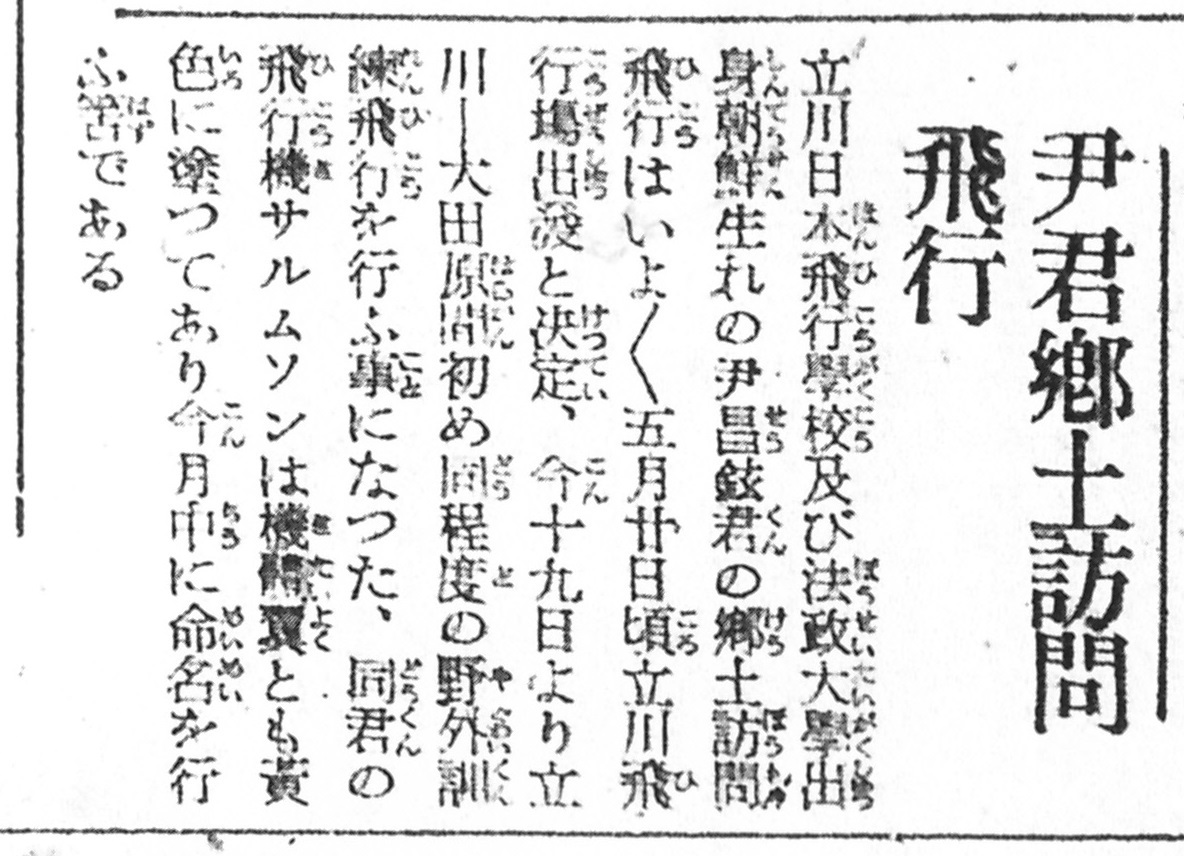 尹君鄕土訪問
飛行
立川日本飛行學校及び法政大學出
身朝鮮生れの尹昌鉉君の鄕土訪問
飛行はいよ〱五月廿日頃立川飛
行場出發と決定、今十九日より立
川―大田原間初め同程度の野外訓
練飛行を行ふ事になつた、同君の
飛行機サルムソンは機體翼とも黃
色に塗つてあり今月中に命名を行
ふ筈である